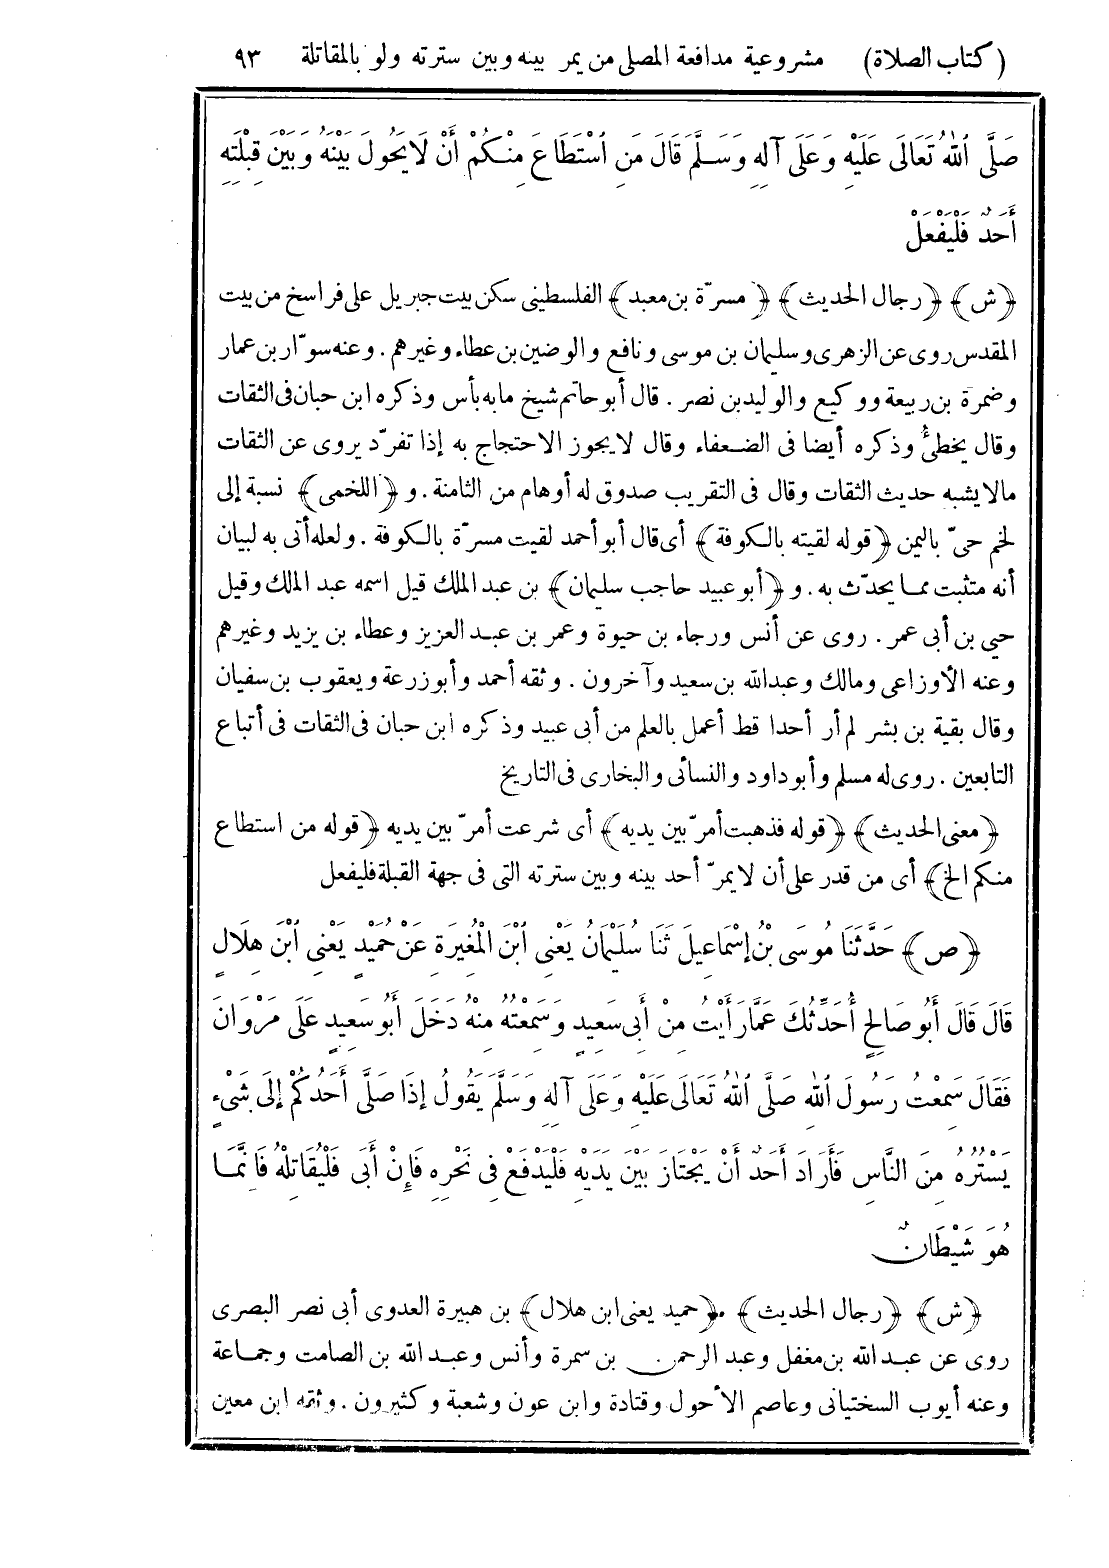 (كتاب الصلاة) مشروعية مدافعة المصلى من يمر بينه وبين سترته ولو بالمقاتلة ٩٣
صَلَّى ٱللهُ تَعَالَى عَلَيْهِ وَعَلَى آلِهِ وَسَلَّمَ قَالَ مَنِ ٱسْتَطَاعَ مِنْكُمْ أَنْ لَا يَحُولَ بَيْنَهُ وَبَيْنَ قِبْلَتِهِ
أَحَدٌ فَلْيَفْعَلْ
﴿ش﴾ ﴿رجال الحديث﴾ ﴿مسرّة بن معبد﴾ الفلسطينى سكن بيت جبريل على فراسخ من بيت
المقدس روى عن الزهرى وسليمان بن موسى ونافع والوضين بن عطاء وغيرهم . وعنه سوّار بن عمار
وضمرة بن ربيعة ووكيع والوليد بن نصر . قال أبو حاتم شيخ ما به بأس وذكره ابن حبان فى الثقات
وقال يخطئ وذكره أيضا فى الضعفاء وقال لا يجوز الاحتجاج به إذا تفرّد يروى عن الثقات
مالا يشبه حديث الثقات وقال فى التقريب صدوق له أوهام من الثامنة . و ﴿اللخمى﴾ نسبة إلى
لخم حىّ باليمن ﴿قوله لقيته بالكوفة﴾ أى قال أبو أحمد لقيت مسرّة بالكوفة . ولعله أتى به لبيان
أنه متثبت مما يحدّث به . و ﴿أبو عبيد حاجب سليمان﴾ بن عبد الملك قيل اسمه عبد الملك وقيل
حيى بن أبى عمر . روى عن أنس ورجاء بن حيوة وعمر بن عبد العزيز وعطاء بن يزيد وغيرهم
وعنه الأوزاعى ومالك وعبد الله بن سعيد وآخرون . وثقه أحمد وأبو زرعة ويعقوب بن سفيان
وقال بقية بن بشر لم أر أحدا قط أعمل بالعلم من أبى عبيد وذكره ابن حبان فى الثقات فى أتباع
التابعين . روى له مسلم وأبو داود والنسائى والبخارى فى التاريخ
﴿معنى الحديث﴾ ﴿قوله فذهبت أمرّ بين يديه﴾ أى شرعت أمرّ بين يديه ﴿قوله من استطاع
منكم الخ﴾ أى من قدر على أن لا يمرّ أحد بينه وبين سترته التى فى جهة القبلة فليفعل
﴿ص﴾ حَدَّثَنَا مُوسَى بْنُ إِسْمَاعِيلَ ثَنَا سُلَيْمَانُ يَعْنِى ٱبْنَ الْمُغِيرَةِ عَنْ حُمَيْدٍ يَعْنِى ٱبْنَ هِلَالٍ
قَالَ قَالَ أَبُو صَالِحٍ أُحَدِّثُكَ عَمَّا رَأَيْتُ مِنْ أَبِى سَعِيدٍ وَسَمِعْتُهُ مِنْهُ دَخَلَ أَبُو سَعِيدٍ عَلَى مَرْوَانَ
فَقَالَ سَمِعْتُ رَسُولَ ٱللهِ صَلَّى ٱللهُ تَعَالَى عَلَيْهِ وَعَلَى آلِهِ وَسَلَّمَ يَقُولُ إِذَا صَلَّى أَحَدُكُمْ إِلَى شَىْءٍ
يَسْتُرُهُ مِنَ النَّاسِ فَأَرَادَ أَحَدٌ أَنْ يَجْتَازَ بَيْنَ يَدَيْهِ فَلْيَدْفَعْ فِى نَحْرِهِ فَإِنْ أَبَى فَلْيُقَاتِلْهُ فَإِنَّمَا
هُوَ شَيْطَانٌ
﴿ش﴾ ﴿رجال الحديث﴾ . ﴿حميد يعنى ابن هلال﴾ بن هبيرة العدوى أبى نصر البصرى
روى عن عبد الله بن مغفل وعبد الرحمن بن سمرة وأنس وعبد الله بن الصامت وجماعة
وعنه أيوب السختيانى وعاصم الأحول وقتادة وابن عون وشعبة وكثيرون . وثقه ابن معين